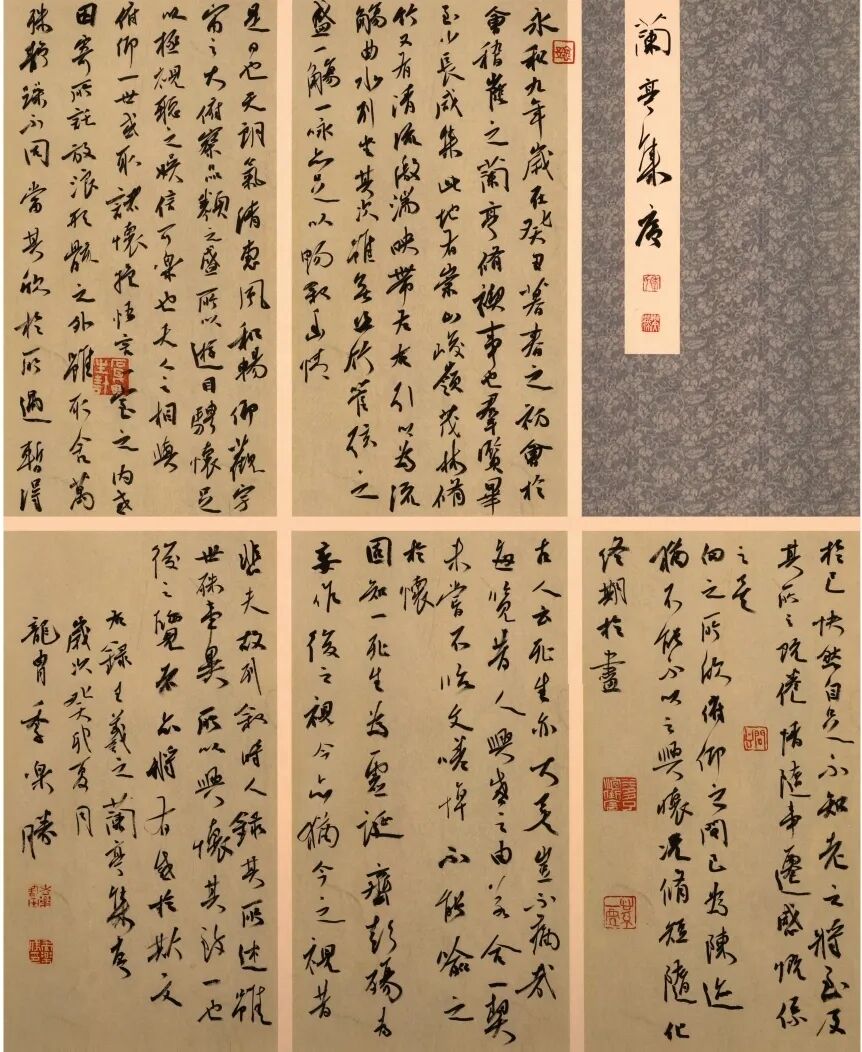 蘭亭集序
永和九年歲在癸丑暮春之初會於
會稽山陰之蘭亭脩禊事也羣賢畢
至少長咸集此地有崇山峻嶺茂林脩
竹又有清流激湍映帶左右引以為流
觴曲水列坐其次雖無絲竹管弦之
盛一觴一詠亦足以暢敘幽情
是日也天朗氣清惠風和暢仰觀宇
宙之大俯察品類之盛所以遊目騁懷足
以極視聽之娛信可樂也夫人之相與
俯仰一世或取諸懷抱悟言一室之內或
因寄所託放浪形骸之外雖取舍萬
殊靜躁不同當其欣於所遇暫得
於己快然自足不知老之將至及
其所之既倦情隨事遷感慨係
之矣
向之所欣俯仰之間已為陳迹
猶不能不以之興懷況脩短隨化
終期於盡
古人云死生亦大矣豈不痛哉
每覽昔人興感之由若合一契
未嘗不臨文嗟悼不能喻之
於懷
固知一死生為虛誕齊彭殤為
妄作後之視今亦猶今之視昔
悲夫故列敘時人錄其所述雖
世殊事異所以興懷其致一也
後之覽者亦將有感於斯文
右錄王羲之蘭亭集序
歲次癸卯夏月
龍胄季樂勝